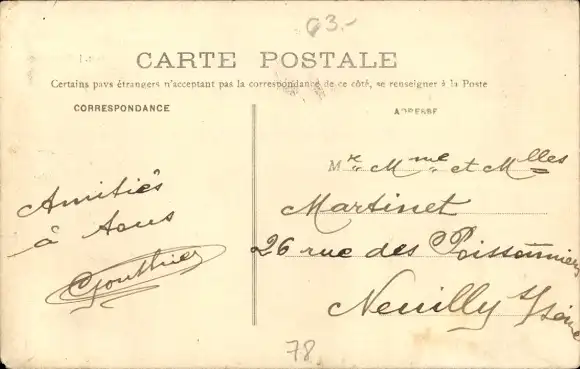 63.-
CARTE POSTALE
Certains pays étrangers n'acceptant pas la correspondance de ce côté, se renseigner à la Poste
CORRESPONDANCE
ADRESSE
Amitiés
à tous
Gouthier
Mr. Mme. et Mlles
Martinet
26 rue des Poissonniers
Neuilly s/Seine
78